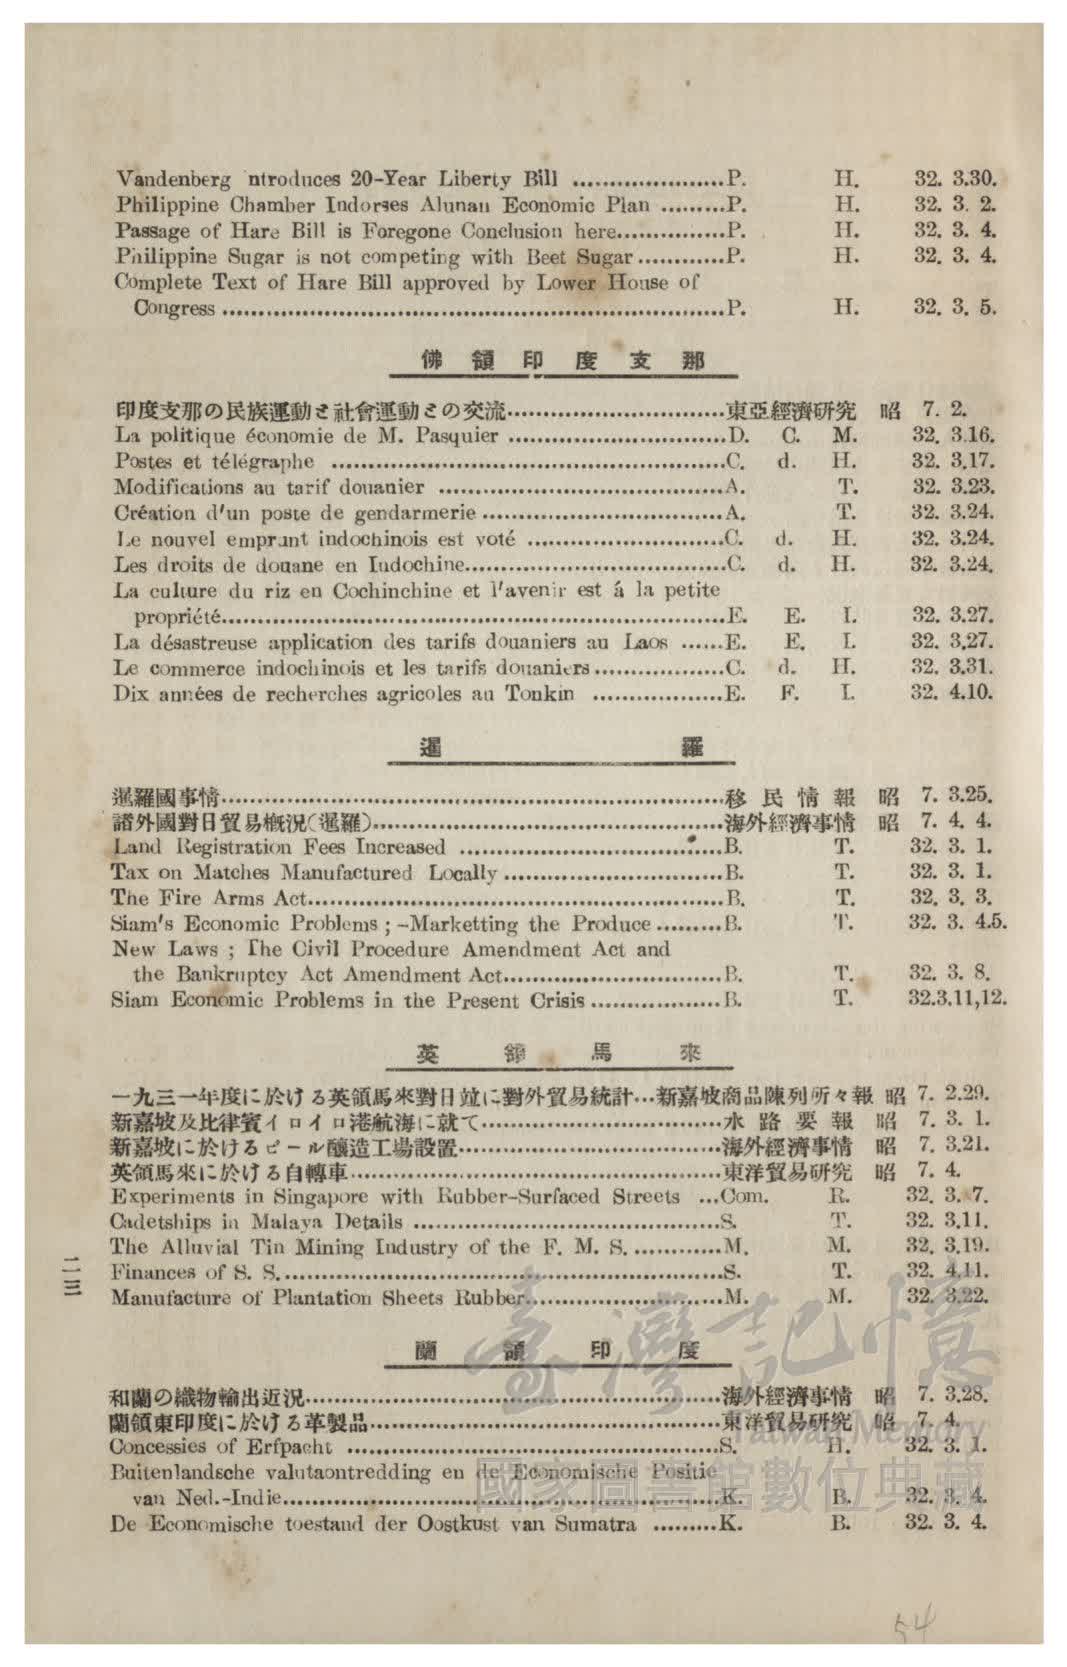 Vandenberg ntroduces 20-Year Liberty Bill ....................P. H. 32. 3.30.
Philippine Chamber Indorses Alunan Economic Plan .........P. H. 32. 3. 2.
Passage of Hare Bill is Foregone Conclusion here...............P. H. 32. 3. 4.
Philippine Sugar is not competing with Beet Sugar............P. H. 32. 3. 4.
Complete Text of Hare Bill approved by Lower House of
Congress ....................................................................P. H. 32. 3. 5.
佛領印度支那
印度支那の民族運動と社會運動との交流..............................東亞經濟研究 昭 7. 2.
La politique économie de M. Pasquier ..............................D. C. M. 32. 3.16.
Postes et télégraphe ......................................................C. d. H. 32. 3.17.
Modifications au tarif douanier .......................................A. T. 32. 3.23.
Création d'un poste de gendarmerie .................................A. T. 32. 3.24.
Le nouvel emprunt indochinois est voté ...........................C. d. H. 32. 3.24.
Les droits de douane en Indochine....................................C. d. H. 32. 3.24.
La culture du riz en Cochinchine et l'avenir est á la petite
propriété.....................................................................E. E. I. 32. 3.27.
La désastreuse application des tarifs douaniers au Laos ......E. E. I. 32. 3.27.
Le commerce indochinois et les tarifs douaniers..................C. d. H. 32. 3.31.
Dix années de recherches agricoles au Tonkin ..................E. F. I. 32. 4.10.
暹羅
暹羅國事情.....................................................................移民情報 昭 7. 3.25.
諸外國對日貿易槪況(暹羅)................................................海外經濟事情 昭 7. 4. 4.
Land Registration Fees Increased ....................................B. T. 32. 3. 1.
Tax on Matches Manufactured Locally ..............................B. T. 32. 3. 1.
The Fire Arms Act.........................................................B. T. 32. 3. 3.
Siam's Economic Problems ; -Marketting the Produce .........B. T. 32. 3. 4.5.
New Laws ; The Civil Procedure Amendment Act and
the Bankruptcy Act Amendment Act..............................B. T. 32. 3. 8.
Siam Economic Problems in the Present Crisis ..................B. T. 32.3.11,12.
英領馬來
一九三一年度に於ける英領馬來對日竝に對外貿易統計...新嘉坡商品陳列所々報 昭 7. 2.29.
新嘉坡及比律賓イロイロ港航海に就て.................................水路要報 昭 7. 3. 1.
新嘉坡に於けるビール釀造工場設置....................................海外經濟事情 昭 7. 3.21.
英領馬來に於ける自轉車...................................................東洋貿易研究 昭 7. 4.
Experiments in Singapore with Rubber-Surfaced Streets ...Com. R. 32. 3. 7.
Cadetships in Malaya Details ..........................................S. T. 32. 3.11.
The Alluvial Tin Mining Industry of the F. M. S. ............M. M. 32. 3.19.
Finances of S. S. ............................................................S. T. 32. 4.11.
Manufacture of Plantation Sheets Rubber...........................M. M. 32. 3.22.
蘭領印度
和蘭の織物輸出近況.........................................................海外經濟事情 昭 7. 3.28.
蘭領東印度に於ける革製品................................................東洋貿易研究 昭 7. 4.
Concessies of Erfpacht ...................................................S. H. 32. 3. 1.
Buitenlandsche valutaontredding en de Economische Positie
van Ned.-Indie............................................................K. B. 32. 3. 4.
De Economische toestand der Oostkust van Sumatra .........K. B. 32. 3. 4.
二三
臺灣記憶
Taiwan Memory
國家圖書館數位典藏
54